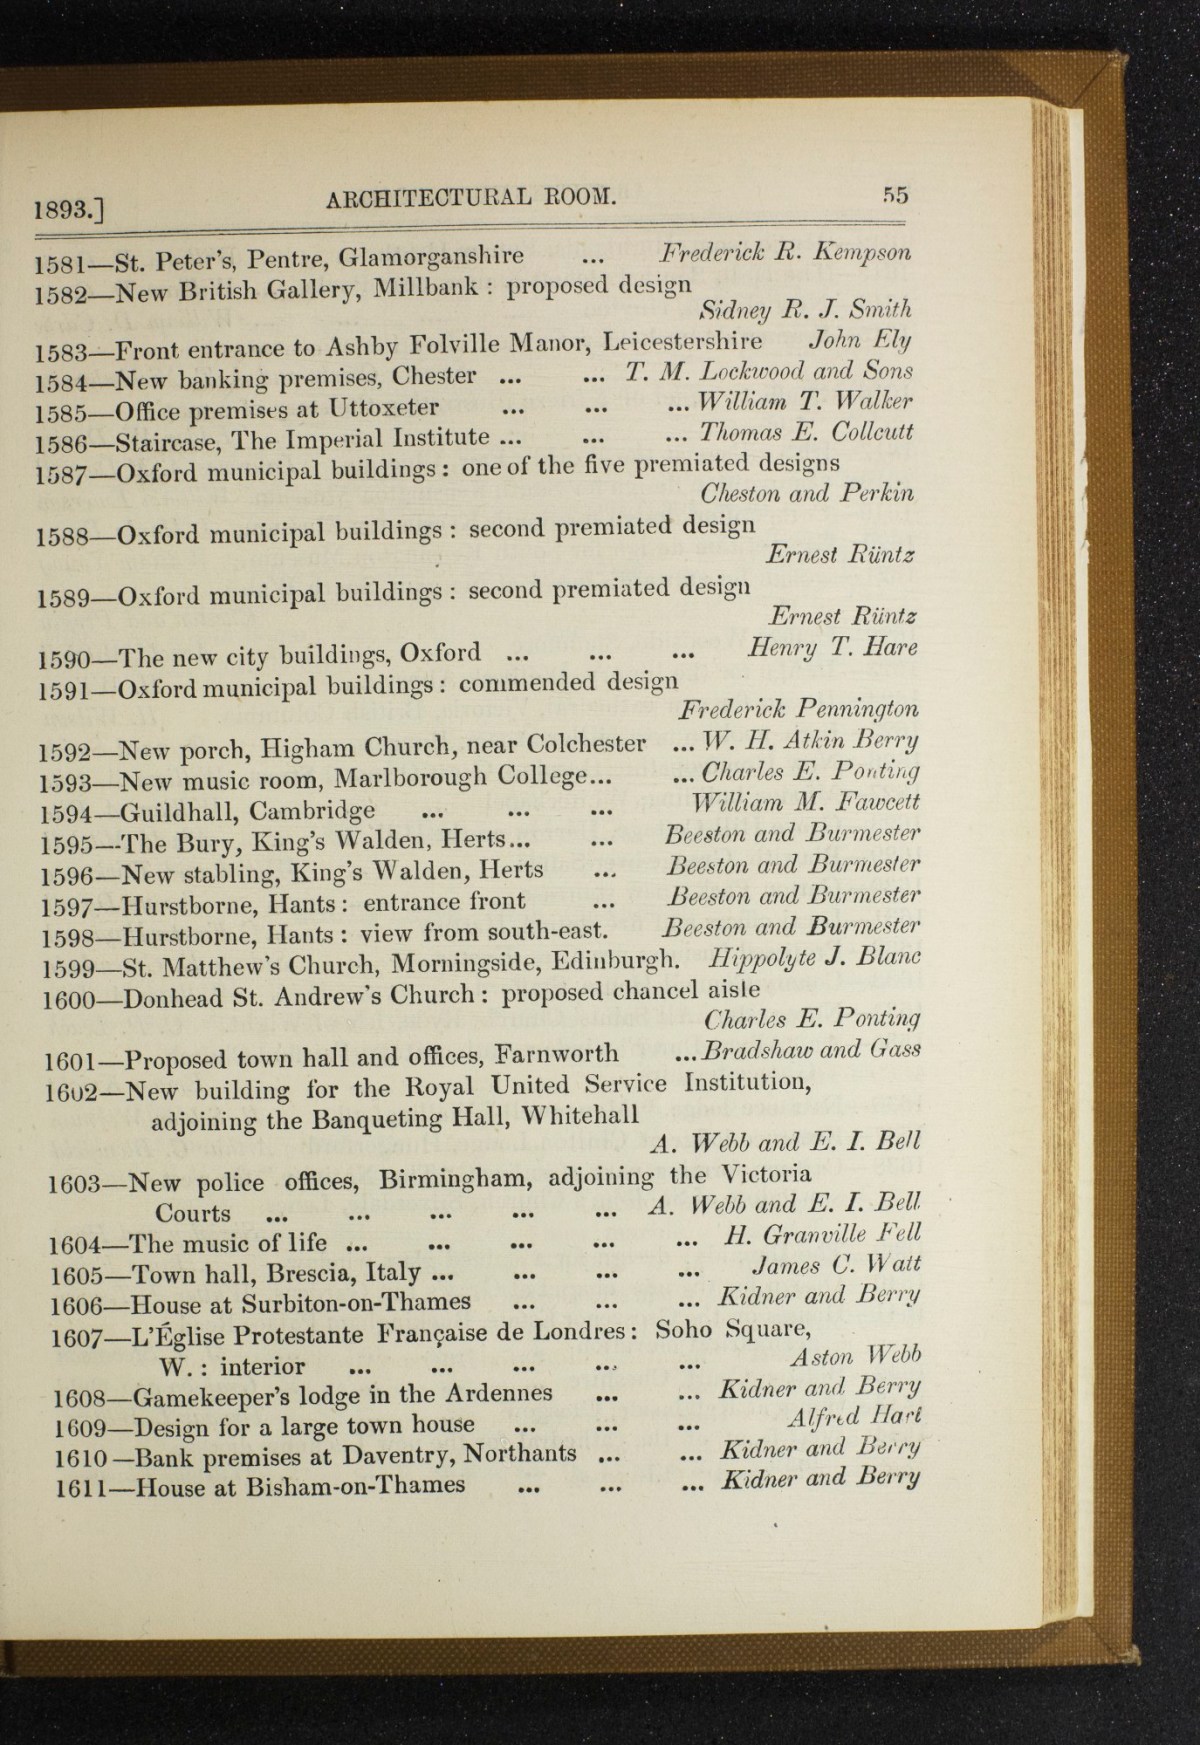 1893.] ARCHITECTURAL ROOM. 55
1581—St. Peter's, Pentre, Glamorganshire ... Frederick R. Kempson
1582—New British Gallery, Millbank : proposed design
Sidney R. J. Smith
1583—Front entrance to Ashby Folville Manor, Leicestershire John Ely
1584—New banking premises, Chester ... ... T. M. Lockwood and Sons
1585—Office premises at Uttoxeter ... ... ... William T. Walker
1586—Staircase, The Imperial Institute ... ... ... Thomas E. Collcutt
1587—Oxford municipal buildings : one of the five premiated designs
Cheston and Perkin
1588—Oxford municipal buildings : second premiated design
Ernest Rüntz
1589—Oxford municipal buildings : second premiated design
Ernest Rüntz
1590—The new city buildings, Oxford ... ... ... Henry T. Hare
1591—Oxford municipal buildings : commended design
Frederick Pennington
1592—New porch, Higham Church, near Colchester ... W. H. Atkin Berry
1593—New music room, Marlborough College... ... Charles E. Ponting
1594—Guildhall, Cambridge ... ... ... William M. Fawcett
1595—The Bury, King's Walden, Herts... ... Beeston and Burmester
1596—New stabling, King's Walden, Herts ... Beeston and Burmester
1597—Hurstborne, Hants : entrance front ... Beeston and Burmester
1598—Hurstborne, Hants : view from south-east. Beeston and Burmester
1599—St. Matthew's Church, Morningside, Edinburgh. Hippolyte J. Blanc
1600—Donhead St. Andrew's Church : proposed chancel aisle
Charles E. Ponting
1601—Proposed town hall and offices, Farnworth ... Bradshaw and Gass
1602—New building for the Royal United Service Institution,
adjoining the Banqueting Hall, Whitehall
A. Webb and E. I. Bell
1603—New police offices, Birmingham, adjoining the Victoria
Courts ... ... ... ... ... A. Webb and E. I. Bell
1604—The music of life ... ... ... ... ... H. Granville Fell
1605—Town hall, Brescia, Italy ... ... ... ... James C. Watt
1606—House at Surbiton-on-Thames ... ... ... Kidner and Berry
1607—L'Église Protestante Française de Londres : Soho Square,
W. : interior ... ... ... ... ... Aston Webb
1608—Gamekeeper's lodge in the Ardennes ... ... Kidner and Berry
1609—Design for a large town house ... ... ... Alfred Hart
1610—Bank premises at Daventry, Northants ... ... Kidner and Berry
1611—House at Bisham-on-Thames ... ... ... Kidner and Berry